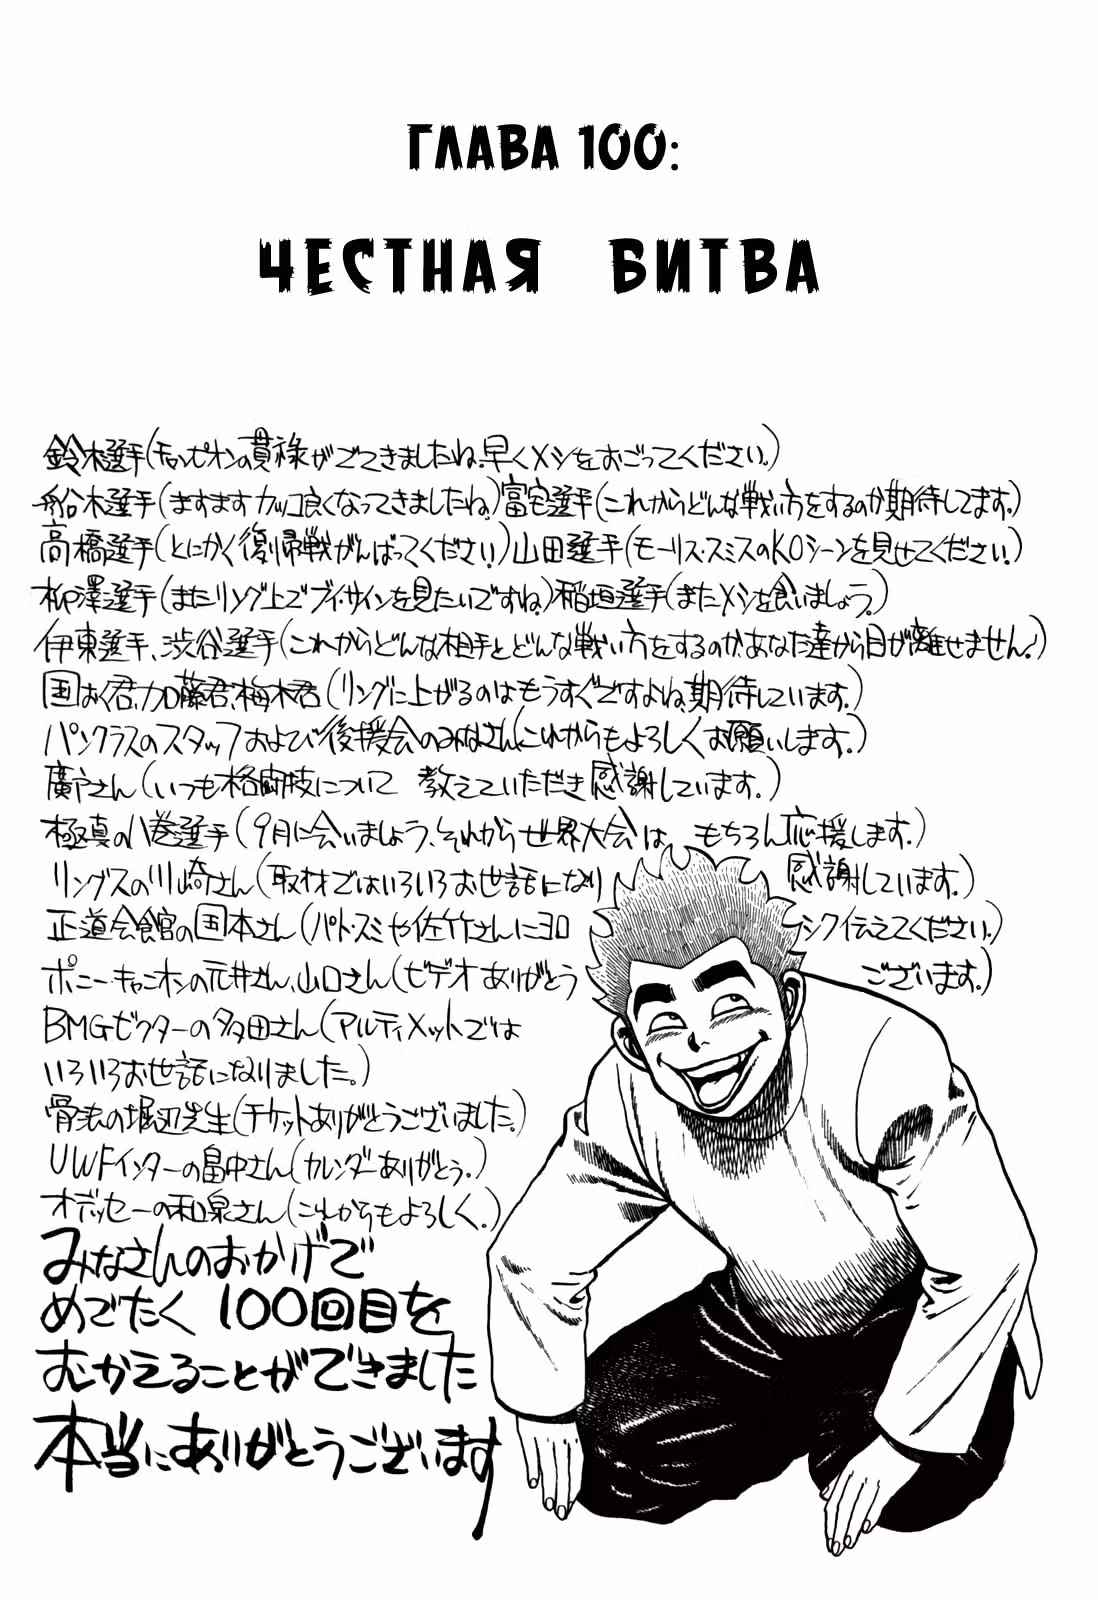 ГЛАВА 100:
ЧЕСТНАЯ БИТВА
鈴木選手(チャンピオンの貫禄がでてきましたね。早くメシをおごってください。)
船木選手(ますますカッコ良くなってきましたね。)冨宅選手(これからどんな戦い方をするのか期待してます。)
高橋選手(とにかく復帰戦がんばってください。)山田選手(モーリス・スミスのKOシーンを見せてください。)
柳澤選手(またリング上でブイ・サインを見たいですね。)稲垣選手(またメシを食いましょう。)
伊東選手、渋谷選手(これからどんな相手とどんな戦い方をするのかあなた達から目が離せません!)
国奥君、加藤君、梅木君(リングに上がるのはもうすぐですよね。期待しています。)
パンクラスのスタッフおよび後援会のみなさん(これからもよろしくお願いします。)
廣戸さん(いつも格闘技について 教えていただき感謝しています。)
極真の八巻選手(9月に会いましょう、それから世界大会は、もちろん応援します。)
リングスの川崎さん(取材ではいろいろお世話になり 感謝しています。)
正道会館の国本さん(パト・スミや佐竹さんにヨロ シク伝えてください。)
ポニー・キャニオンの元井さん、山口さん(ビデオありがとう ございます。)
BMGビクターの多田さん(アルティメットでは
いろいろお世話になりました。)
骨法の堀辺先生(チケットありがとうございました。)
UWFインターの畠中さん(カレンダーありがとう。)
オデッセーの和泉さん(これからもよろしく。)
みなさんのおかげで
めでたく100回目を
むかえることができました
本当にありがとうございます